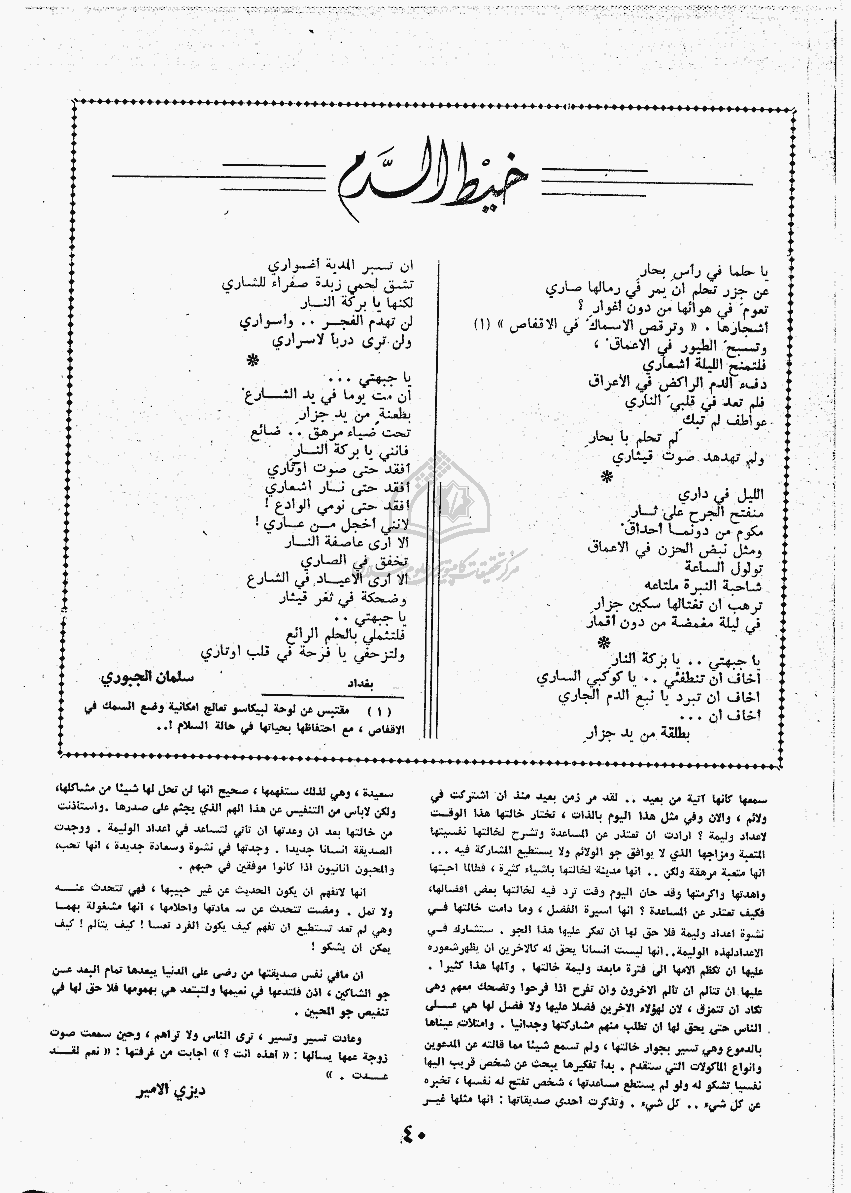 خيط الدم
يا حلما في رأس بحار
عن جزر تحلم أن يمر في رمالها صاري
تعوم في هوائها من دون أغوار ؟
أشجارها . « وترقص الاسماك في الاقفاص » (١)
وتسبح الطيور في الاعماق ،
فلتمنح الليلة أشعاري
دفء الدم الراكض في الأعراق
فلم تعد في قلبي الناري
عواطف لم تبك
لم تحلم يا بحار
ولم تهدهد صوت قيثاري
*
الليل في داري
منفتح الجرح على ثار
مكوم من دونما أحداق
ومثل نبض الحزن في الاعماق
تولول الساعة
شاحبة النبرة ملتاعه
ترهب ان تغتالها سكين جزار
في ليلة مغمضة من دون أقمار
*
يا جبهتي .. يا بركة النار
أخاف ان تنطفئي .. يا كوكبي الساري
اخاف ان تبرد يا نبع الدم الجاري
أخاف ان ...
بطلقة من يد جزار
ان تسبر المدية أغواري
تشق لحمي زبدة صفراء للشاري
لكنها يا بركة النار
لن تهدم الفجر .. وأسواري
ولن ترى دربا لاسراري
*
يا جبهتي ...
أن مت يوما في يد الشارع
بطعنة من يد جزار
تحت ضياء مرهق .. ضائع
فانني يا بركة النار
أفقد حتى صوت أوتاري
أفقد حتى نار أشعاري
أفقد حتى نومي الوادع !
لانني أخجل من عاري !
ألا أرى عاصفة النار
تخفق في الصاري
ألا أرى الاعياد في الشارع
وضحكة في ثغر قيثار
يا جبهتي ..
فلتثملي بالحلم الرائع
ولتزحفي يا فرحة في قلب أوتاري
بغداد سلمان الجبوري
(١) مقتبس عن لوحة لبيكاسو تعالج امكانية وضع السمك في
الاقفاص ، مع احتفاظها بحياتها في حالة السلام !..
سمعها كانها آتية من بعيد .. لقد مر زمن بعيد منذ ان اشتركت في
ولائم ، والان وفي مثل هذا اليوم بالذات ، تختار خالتها هذا الوقت
لاعداد وليمة ؟ ارادت ان تعتذر عن المساعدة وتشرح لخالتها نفسيتها
المتعبة ومزاجها الذي لا يوافق جو الولائم ولا يستطيع المشاركة فيه ...
انها متعبة مرهقة ولكن .. انها مدينة لخالتها باشياء كثيرة ، فطالما احبتها
واهدتها واكرمتها وقد حان اليوم وقت ترد فيه لخالتها بعض افضالها،
فكيف تعتذر عن المساعدة ؟ انها اسيرة الفضل ، وما دامت خالتها في
نشوة اعداد وليمة فلا حق لها ان تعكر عليها هذا الجو . ستشارك في
الاعداد لهذه الوليمة..انها ليست انسانا يحق له كالاخرين ان يظهر شعوره
عليها ان تكظم الامها الى فترة مابعد وليمة خالتها . وآلمها هذا كثيرا .
عليها ان تتالم ان تالم الاخرون وان تفرح اذا فرحوا وتضحك معهم وهي
تكاد ان تتمزق ، لان لهؤلاء الاخرين فضلا عليها ولا فضل لها هي على
الناس حتى يحق لها ان تطلب منهم مشاركتها وجدانيا . وامتلات عيناها
بالدموع وهي تسير بجوار خالتها ، ولم تسمع شيئا مما قالته عن المدعوين
وانواع الماكولات التي ستقدم . بدأ تفكيرها يبحث عن شخص قريب اليها
نفسيا تشكو له ولو لم يستطع مساعدتها ، شخص تفتح له نفسها ، تخبره
عن كل شيء .. كل شيء . وتذكرت احدى صديقاتها : انها مثلها غير
سعيدة ، وهي لذلك ستفهمها ، صحيح انها لن تحل لها شيئا من مشاكلها،
ولكن لاباس من التنفيس عن هذا الهم الذي يجثم على صدرها . واستاذنت
من خالتها بعد ان وعدتها ان تاتي لتساعد في اعداد الوليمة . ووجدت
الصديقة انسانا جديدا . وجدتها في نشوة وسعادة جديدة ، انها تحب،
والمحبون انانيون اذا كانوا موفقين في حبهم .
انها لاتفهم ان يكون الحديث عن غير حبيبها ، فهي تتحدث عنه
ولا تمل . ومضت تتحدث عن سعادتها واحلامها ، انها مشغولة بهما
وهي لم تعد تستطيع ان تفهم كيف يكون الفرد تعسا ! كيف يتألم ! كيف
يمكن ان يشكو !
ان مافي نفس صديقتها من رضى على الدنيا يبعدها تمام البعد عن
جو الشاكين ، اذن فلتدعها في نعيمها ولتبتعد هي بهمومها فلا حق لها في
تنغيص جو المحبين .
وعادت تسير وتسير ، ترى الناس ولا تراهم ، وحين سمعت صوت
زوجة عمها يسالها : « أهذه انت ؟ » اجابت من غرفتها : « نعم لقد
عدت . »
ديزي الامير
٤٠